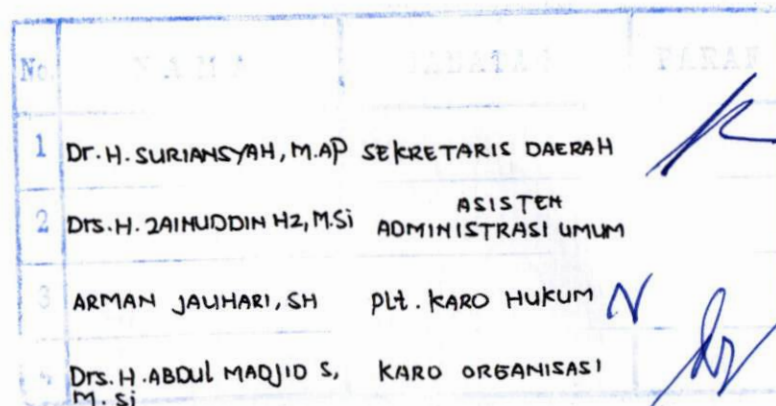 No. NAMA JABATAN PARAF
1 Dr. H. SURIANSYAH, M.AP SEKRETARIS DAERAH
2 Drs. H. ZAINUDDIN HZ, M.Si ASISTEN
ADMINISTRASI UMUM
3 ARMAN JAUHARI, SH Plt. KARO HUKUM
4 Drs. H. ABDUL MADJID S,
M.Si KARO ORGANISASI